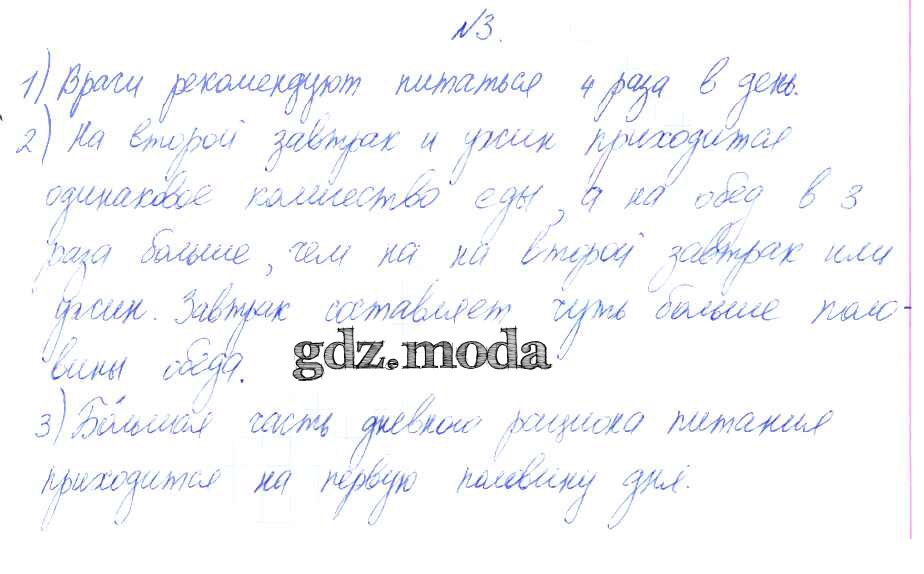 №3.
1) Врачи рекомендуют питаться 4 раза в день.
2) На второй завтрак и ужин приходится
одинаковое количество еды, а на обед в 3
раза больше, чем на на второй завтрак или
ужин. Завтрак составляет чуть больше поло-
вины обеда.
gdz.moda
3) Бо́льшая часть дневного рациона питания
приходится на первую половину дня.